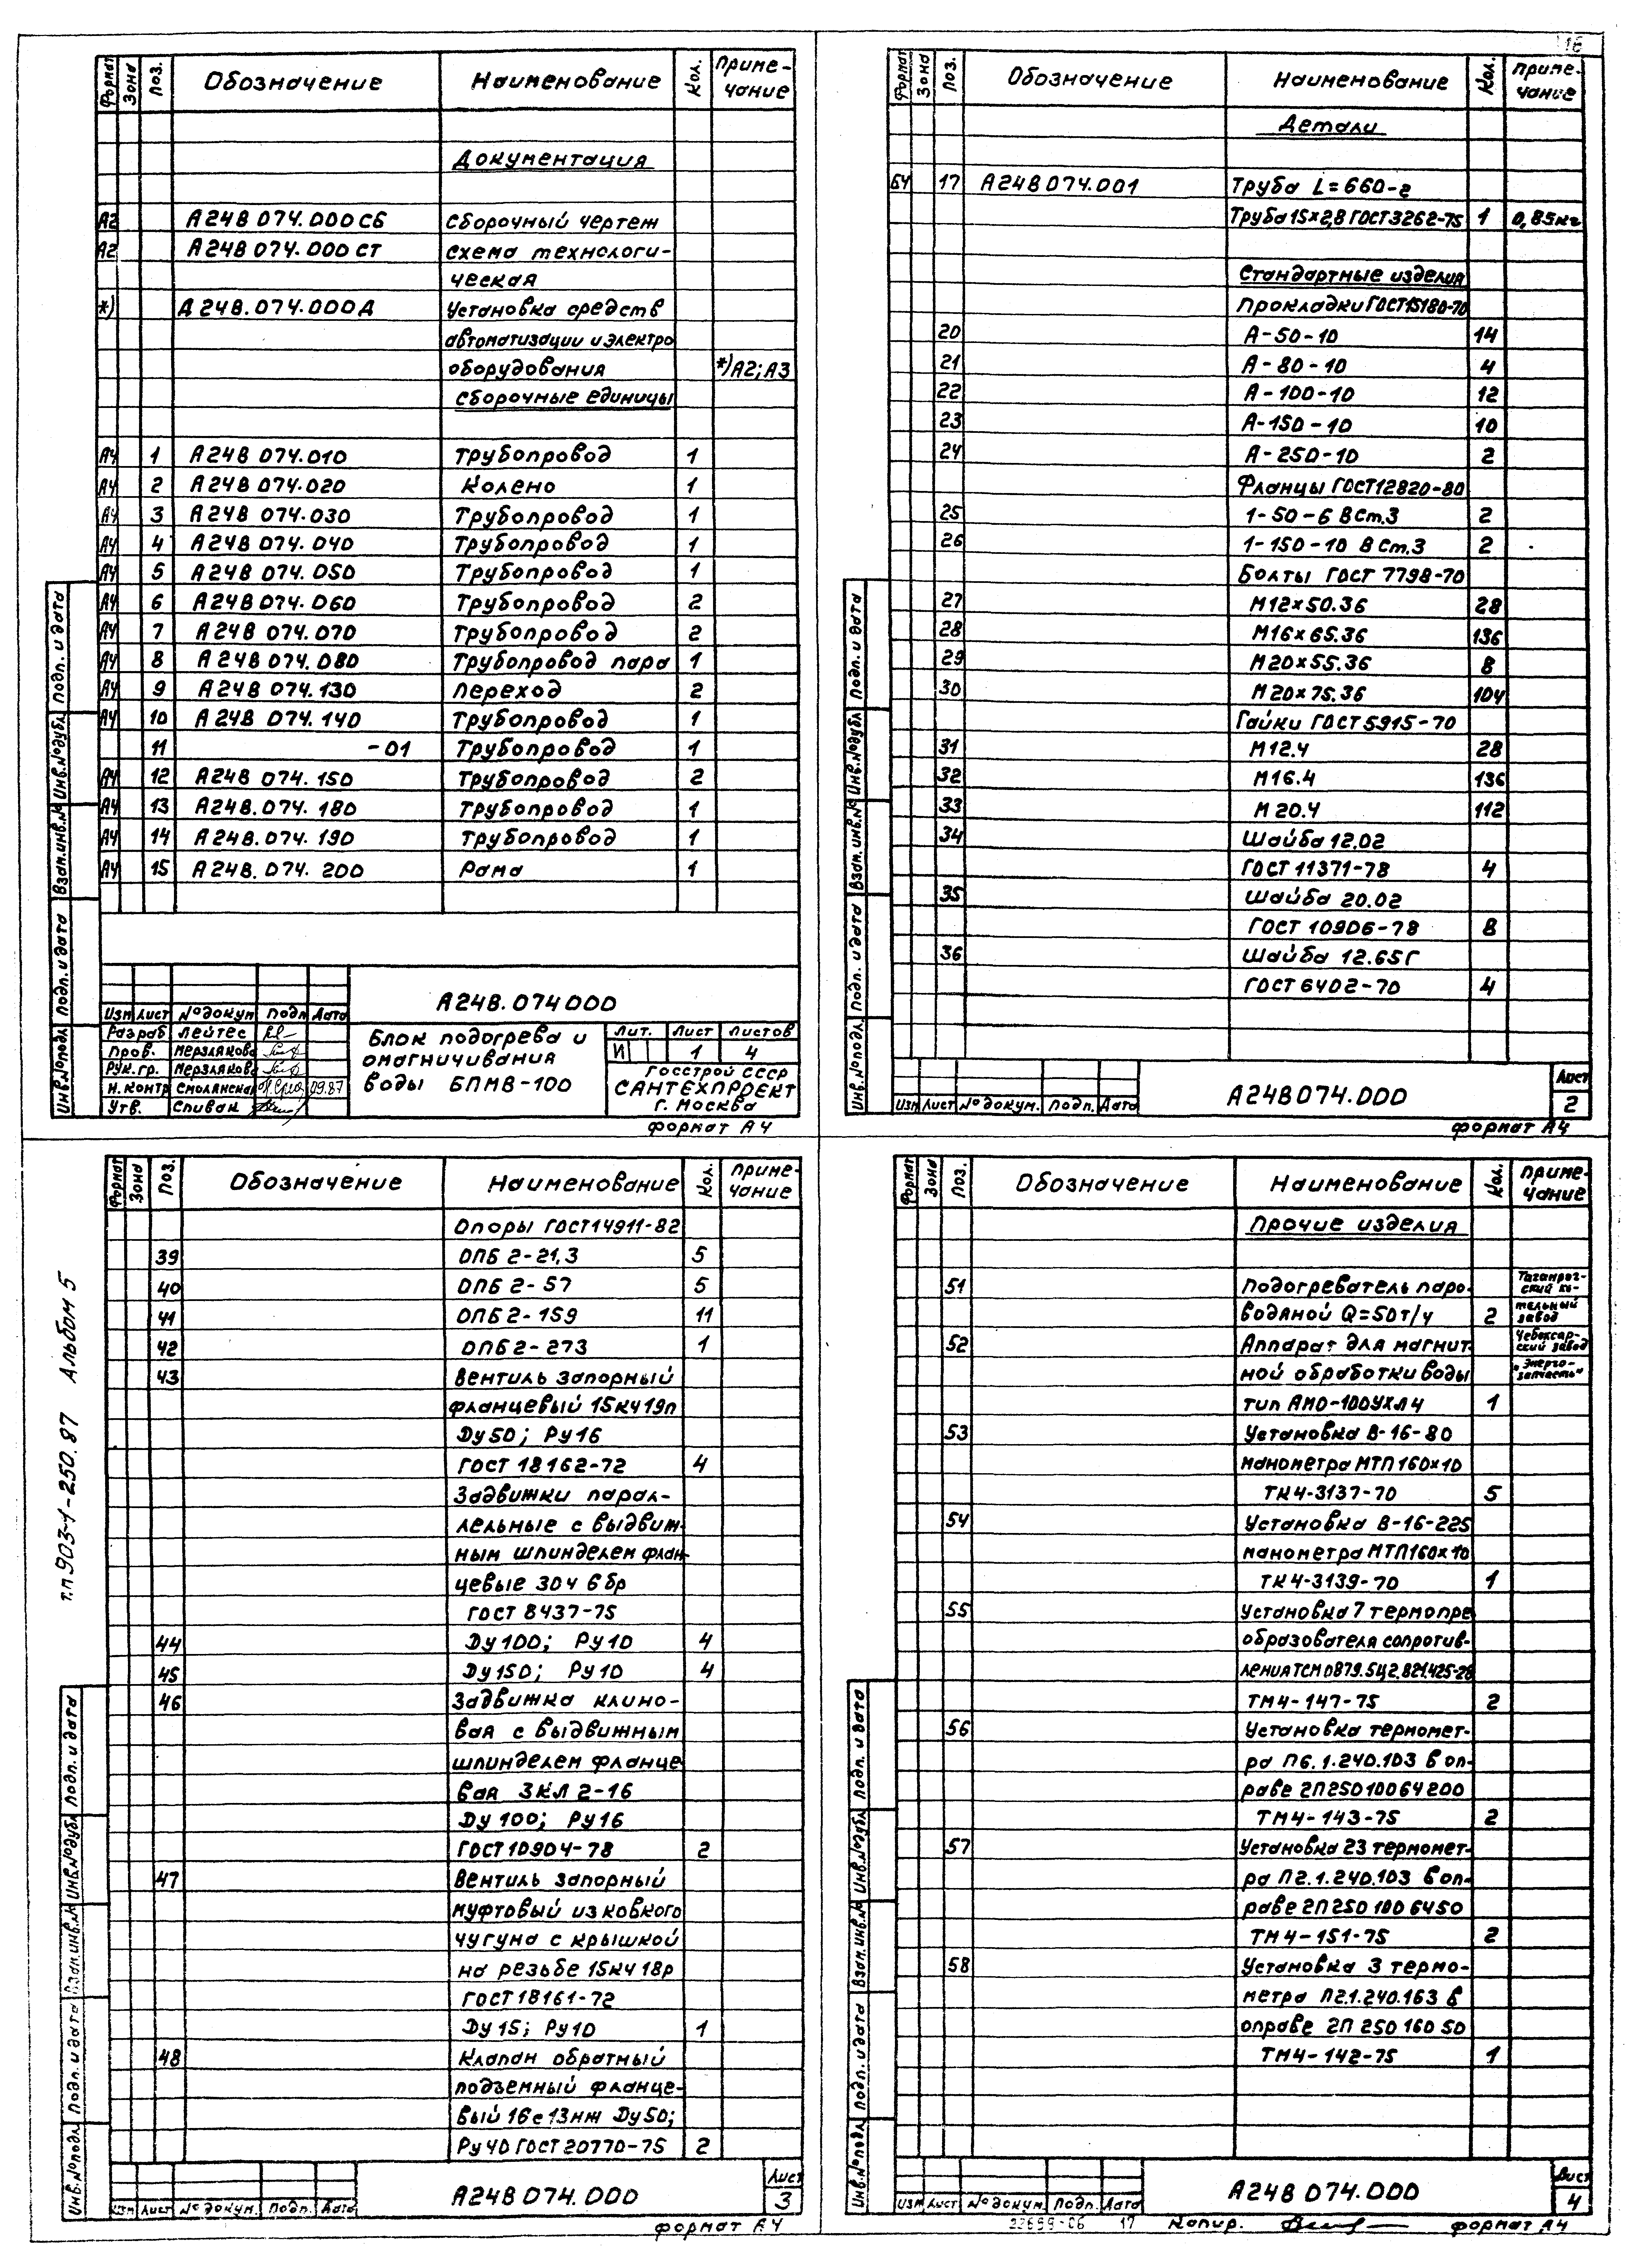 16
Формат Зона Поз. Обозначение Наименование Кол. Приме-
чание
Документация
А2 А24В 074.000 СБ Сборочный чертеж
А2 А24В 074.000 СТ Схема технологи-
ческая
*) А24В.074.000Д Установка средств
автоматизации и электро
оборудования *)А2;А3
Сборочные единицы
А4 1 А24В 074.010 Трубопровод 1
А4 2 А24В 074.020 Колено 1
А4 3 А24В 074.030 Трубопровод 1
А4 4 А24В 074.040 Трубопровод 1
А4 5 А24В 074.050 Трубопровод 1
А4 6 А24В 074.060 Трубопровод 2
А4 7 А24В 074.070 Трубопровод 2
А4 8 А24В 074.080 Трубопровод пара 1
А4 9 А24В 074.130 Переход 2
А4 10 А24В 074.140 Трубопровод 1
11 -01 Трубопровод 1
А4 12 А24В 074.150 Трубопровод 2
А4 13 А24В.074.180 Трубопровод 1
А4 14 А24В.074.190 Трубопровод 1
А4 15 А24В.074.200 Рама 1
Инв.№подл. Подп. и дата Взам.инв.№ Инв.№дубл. Подп. и дата
А24В.074000
Изм Лист №докум Подп Дата
Разраб Лейтес
Пров. Мерзлякова
Рук.гр. Мерзлякова
Н.контр Смолянская 09.87
Утв. Спивак
Блок подогрева и
омагничивания
воды БПМВ-100
Лит. Лист Листов
И 1 4
Госстрой СССР
САНТЕХПРОЕКТ
г. Москва
формат А4
Формат Зона Поз. Обозначение Наименование Кол. Приме-
чание
Детали
БЧ 17 А24В074.001 Труба L=660-2
Труба 15×2,8 ГОСТ3262-75 1 0,85кг
Стандартные изделия
Прокладки ГОСТ15180-70
20 А-50-10 14
21 А-80-10 4
22 А-100-10 12
23 А-150-10 10
24 А-250-10 2
Фланцы ГОСТ12820-80
25 1-50-6 ВСт.3 2
26 1-150-10 ВСт.3 2
Болты ГОСТ 7798-70
27 М12×50.36 28
28 М16×65.36 136
29 М20×55.36 8
30 М20×75.36 104
Гайки ГОСТ 5915-70
31 М12.4 28
32 М16.4 136
33 М20.4 112
34 Шайба 12.02
ГОСТ 11371-78 4
35 Шайба 20.02
ГОСТ 10906-78 8
36 Шайба 12.65Г
ГОСТ 6402-70 4
Инв.№подл. Подп. и дата Взам.инв.№ Инв.№дубл. Подп. и дата
Изм Лист №докум. Подп. Дата
А24В074.000
Лист
2
формат А4
т.п 903-1-250.87 Альбом 5
Формат Зона Поз. Обозначение Наименование Кол. Приме-
чание
Опоры ГОСТ14911-82
39 ОПБ 2-21,3 5
40 ОПБ 2-57 5
41 ОПБ 2-159 11
42 ОПБ 2-273 1
43 Вентиль запорный
фланцевый 15кч19п
Ду50; Ру16
ГОСТ 18162-72 4
Задвижки парал-
лельные с выдвиж-
ным шпинделем флан-
цевые 30ч 6бр
ГОСТ 8437-75
44 Ду100; Ру10 4
45 Ду150; Ру10 4
46 Задвижка клино-
вая с выдвижным
шпинделем фланце
вая ЗКЛ 2-16
Ду 100; Ру16
ГОСТ10904-78 2
47 Вентиль запорный
муфтовый из ковкого
чугуна с крышкой
на резьбе 15кч18р
ГОСТ18161-72
Ду 15; Ру10 1
48 Клапан обратный
подземный фланце-
вый 16с13нж Ду50;
Ру 40 ГОСТ20770-75 2
Инв.№подл. Подп. и дата Взам.инв.№ Инв.№дубл. Подп. и дата
Изм Лист №докум. Подп. Дата
А24В 074.000
Лист
3
формат А4
Формат Зона Поз. Обозначение Наименование Кол. Приме-
чание
Прочие изделия
51 Подогреватель паро- Таганрог-
ский ко-
водяной Q=50т/ч 2 тельный
завод
52 Аппарат для магнит Чебоксар-
ский завод
ной обработки воды „Энерго-
запчасть“
тип АМО-100УХЛ4 1
53 Установка В-16-80
манометра МТП160×10
ТК4-3137-70 5
54 Установка В-16-225
манометра МТП160×10
ТК4-3139-70 1
55 Установка 7 термопре
образователя сопротив-
ления ТСМ0879.5Ц2.821.425-28
ТМ4-147-75 2
56 Установка термомет-
ра П6.1.240.103 в оп-
раве 2П250100 64 200
ТМ4-143-75 2
57 Установка 23 термомет-
ра П2.1.240.103 в оп-
раве 2П250 100 6450
ТМ4-151-75 2
58 Установка 3 термо-
метра П2.1.240.163 в
оправе 2П 250 160 50
ТМ4-142-75 1
Инв.№подл. Подп. и дата Взам.инв.№ Инв.№дубл. Подп. и дата
Изм Лист №докум. Подп. Дата
А24В 074.000
Лист
4
22699-06 17 Копир. формат А4